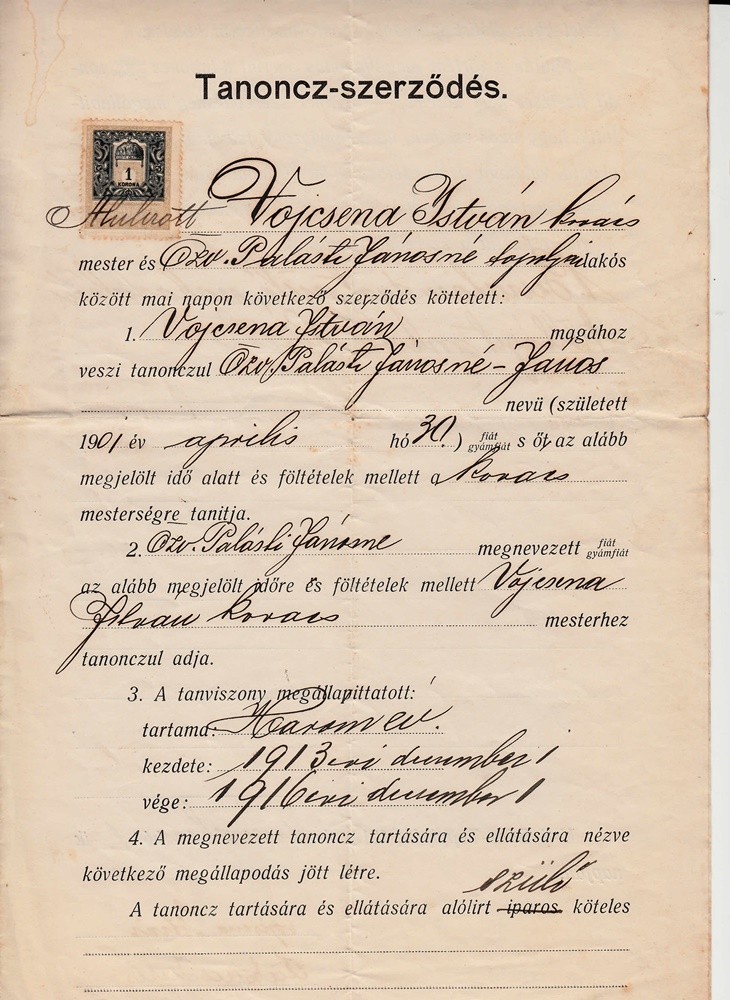 Tanoncz-szerződés.
1
KORONA
Alulirott Vojcsena István kovács
mester és Özv. Palásti Jánosné topolyai lakós
között mai napon következő szerződés köttetett:
1. Vojcsena István magához
veszi tanonczul Özv. Palásti Jánosné - János
nevü (született
1901 év aprilis hó 30.) fiát gyámfiát s őt az alább
megjelölt idő alatt és föltételek mellett a kovacs
mesterségre tanitja.
2. Özv. Palásti Jánosne megnevezett fiát gyámfiát
az alább megjelölt időre és föltételek mellett Vojcsena
Istvan kovacs mesterhez
tanonczul adja.
3. A tanviszony megállapittatott:
tartama: Harom ev.
kezdete: 1913 evi december 1
vége: 1916 evi december 1
4. A megnevezett tanoncz tartására és ellátására nézve
következő megállapodás jött létre.
szülő
A tanoncz tartására és ellátására alólirt iparos köteles